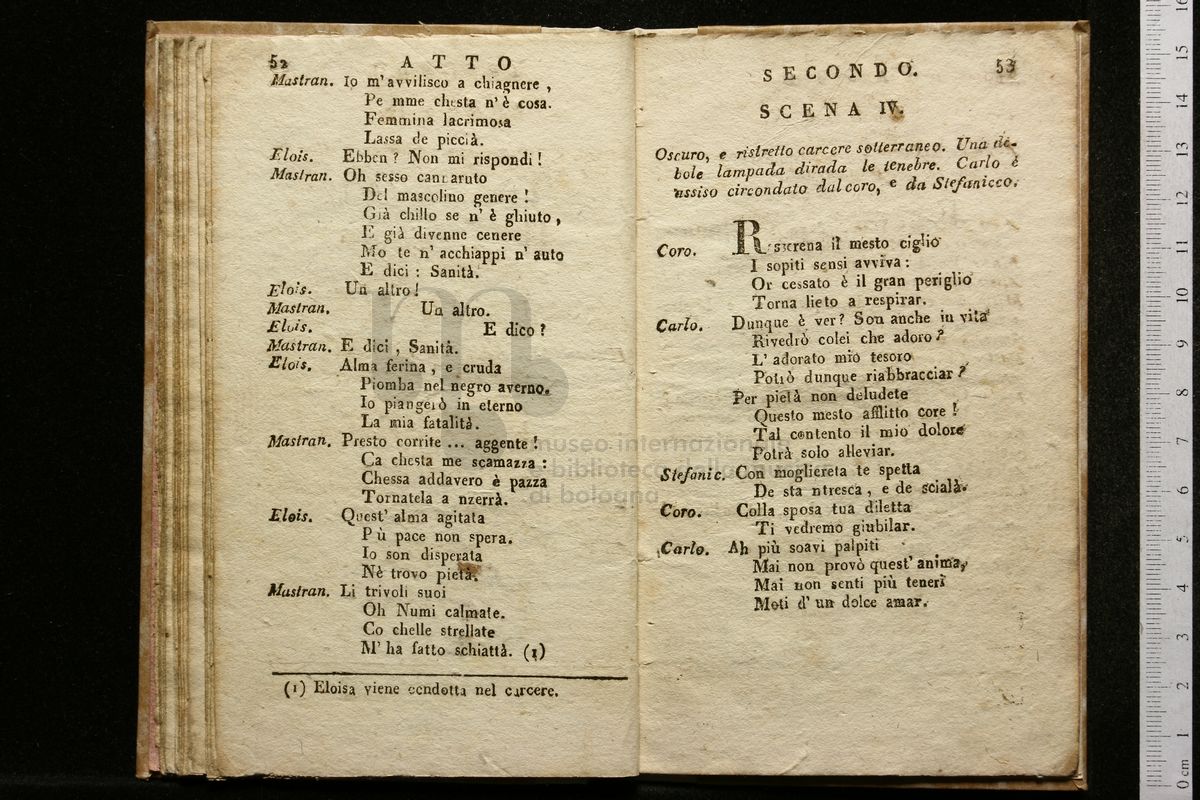 52 ATTO
Mastran. Io m'avvilisco a chiagnere,
Pe mme chesta n'è cosa.
Femmina lacrimosa
Lassa de piccià.
Elois. Ebben? Non mi rispondi!
Mastran. Oh sesso cancaruto
Del mascolino genere!
Già chillo se n'è ghiuto,
E già divenne cenere
Mo te n'acchiappi n'auto
E dici: Sanità.
Elois. Un altro!
Mastran. Un altro.
Elois. E dico?
Mastran. E dici, Sanità.
Elois. Alma ferina, e cruda
Piomba nel negro averno.
Io piangerò in eterno
La mia fatalità.
Mastran. Presto corrite ... aggente!
Ca chesta me scamazza:
Chessa addavero è pazza
Tornatela a nzerrà.
Elois. Quest'alma agitata
Più pace non spera.
Io son disperata
Nè trovo pietà.
Mastran. Li trivoli suoi
Oh Numi calmate.
Co chelle strellate
M'ha fatto schiattà. (1)
(1) Eloisa viene condotta nel carcere.
SECONDO. 53
SCENA IV.
Oscuro, e ristretto carcere sotterraneo. Una de-
bole lampada dirada le tenebre. Carlo è
assiso circondato dal coro, e da Stefanicco.
Coro. Rasserena il mesto ciglio
I sopiti sensi avviva:
Or cessato è il gran periglio
Torna lieto a respirar.
Carlo. Dunque è ver? Son anche in vita
Rivedrò colei che adoro?
L'adorato mio tesoro
Potrò dunque riabbracciar?
Per pietà non deludete
Questo mesto afflitto core!
Tal contento il mio dolore
Potrà solo alleviar.
Stefanic. Con mogliereta te spetta
De sta ntresca, e de scialà.
Coro. Colla sposa tua diletta
Ti vedremo giubilar.
Carlo. Ah più soavi palpiti
Mai non provò quest'anima,
Mai non senti più teneri
Moti d'un dolce amar.
museo internazionale
e biblioteca della musica
di bologna
0 cm 1 2 3 4 5 6 7 8 9 10 11 12 13 14 15 16